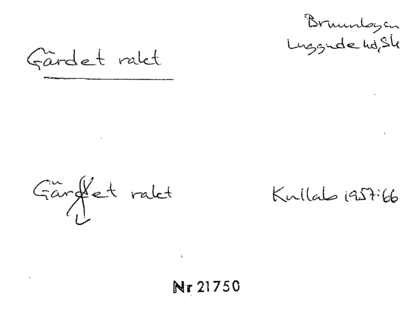 Brunnbyen
Luggude hd, Sk
Gärdet rakt
Gärdet rakt
Kullab 1957:66
Nr 21750